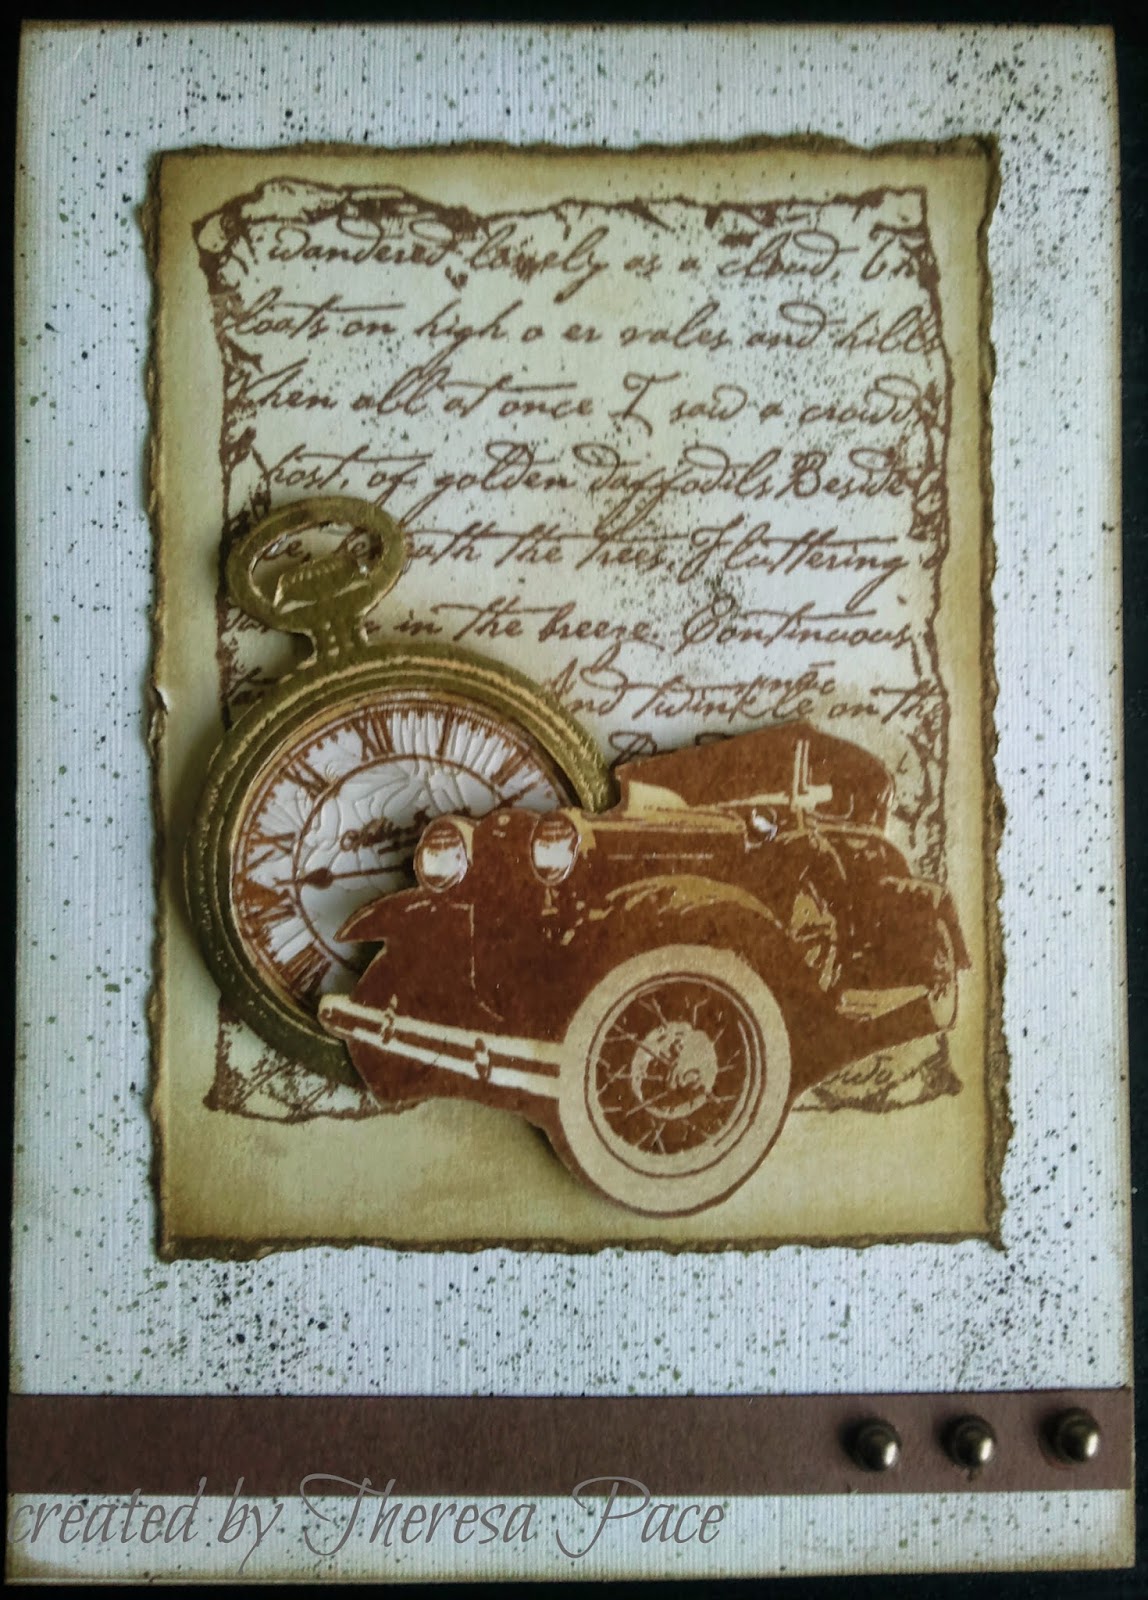 wandered lonely as a cloud, Th
floats on high o er vales and hills
When all at once I saw a crowd,
host, of golden daffodils Beside
the trees, Fluttering
in the breeze. Continuous
and twinkle on th
XII
created by Theresa Pace